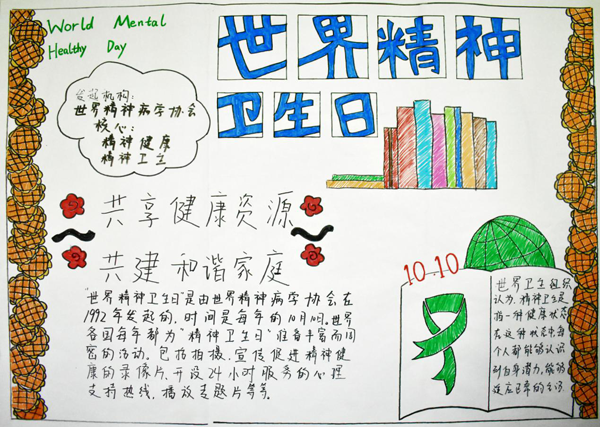 World Mental
Healthy Day
世界精神
卫生日
发起机构:
世界精神病学协会
核心:
精神健康
精神卫生
共享健康资源
共建和谐家庭
"世界精神卫生日"是由世界精神病学协会在
1992年发起的,时间是每年的10月10日。世界
各国每年都为"精神卫生日"准备丰富而周
密的活动。包括拍摄、宣传促进精神健
康的录像片、开设24小时服务的心理
支持热线、播放专题片等等。
10.10
世界卫生组织
认为,精神卫生是
指一种健康状态
在这种状态中,每
个人都能够认识
到自身潜力,能够
适应正常的生活